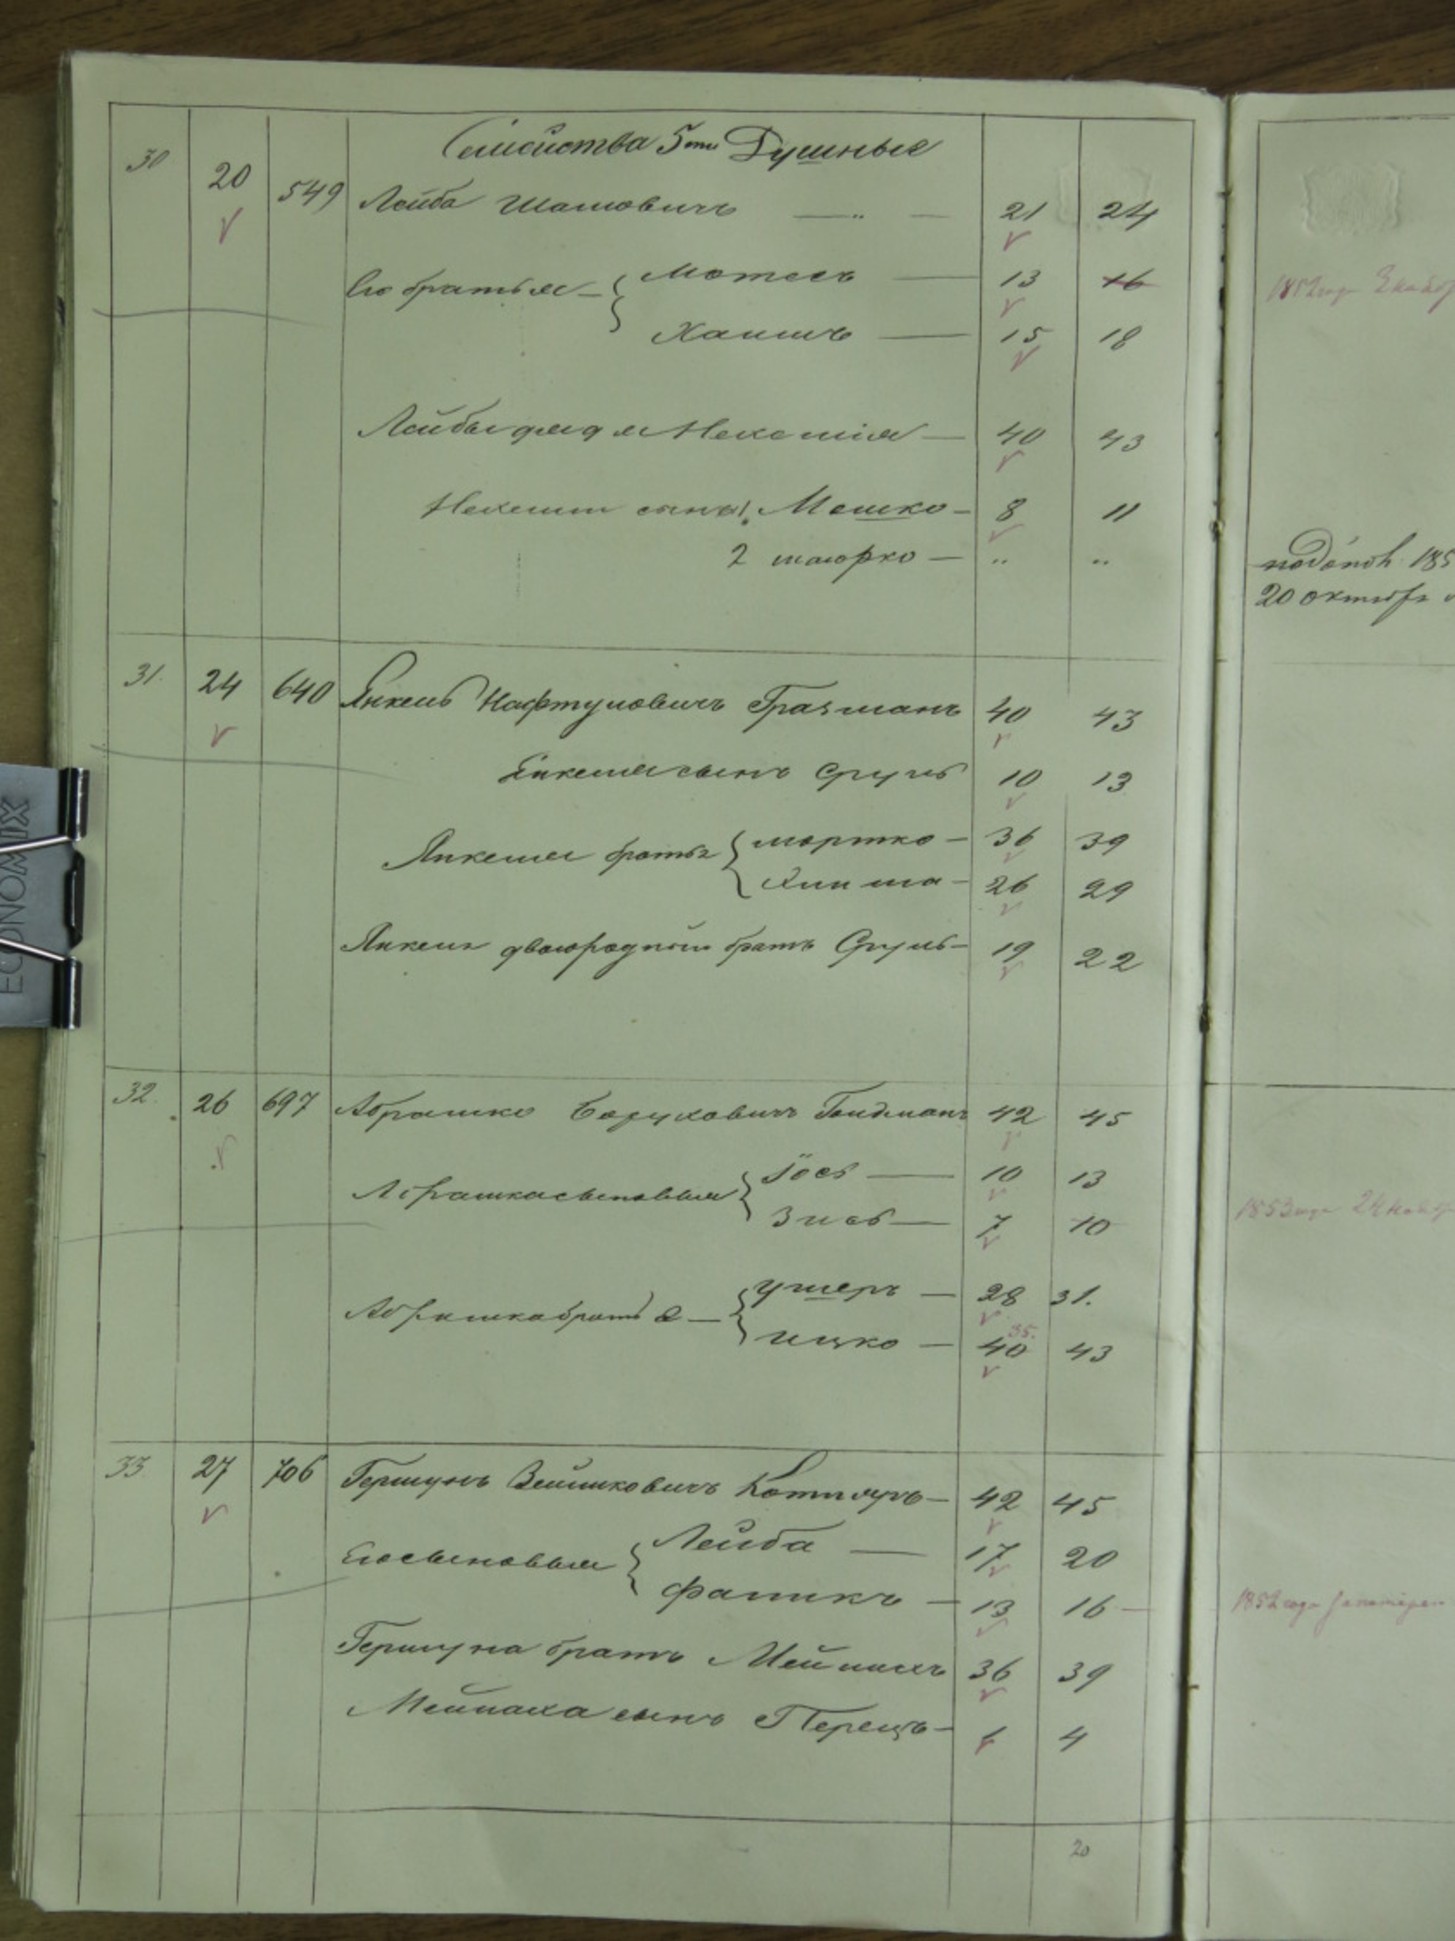 Семейства 5ти Душные
30 20 549 Лейба Шамовичъ — „ — 21 24
Его братья — Мотель — 13 16
Хаимъ — 15 18
Лейбы дядя Нехемія — 40 43
Нехеміи сыны 1. Мошко — 8 11
2 — „ „
31. 24 640 Янкель Нафтуловичъ 40 43
Янкеля сынъ Сруль 10 13
Янкеля братья мортко — 36 39
26 29
Янкеля двоюродной братъ Сруль — 19 22
32. 26 697 Абрашко Боруховичъ Гольдманъ 42 45
Абрашка сыновья Іось — 10 13
Зись — 7 10
Абрашка братья — Ушеръ — 28 31.
35.
ицко — 40 43
33 27 706 Гершунъ Котляръ — 42 45
Его сыновья Лейба — 17 20
Фаликъ — 13 16 —
Гершуна братъ 36 39
сынъ Перецъ — 1 4
20
1852 года
185
20 октября
1853 года 24
1852 года
ECONOMIX